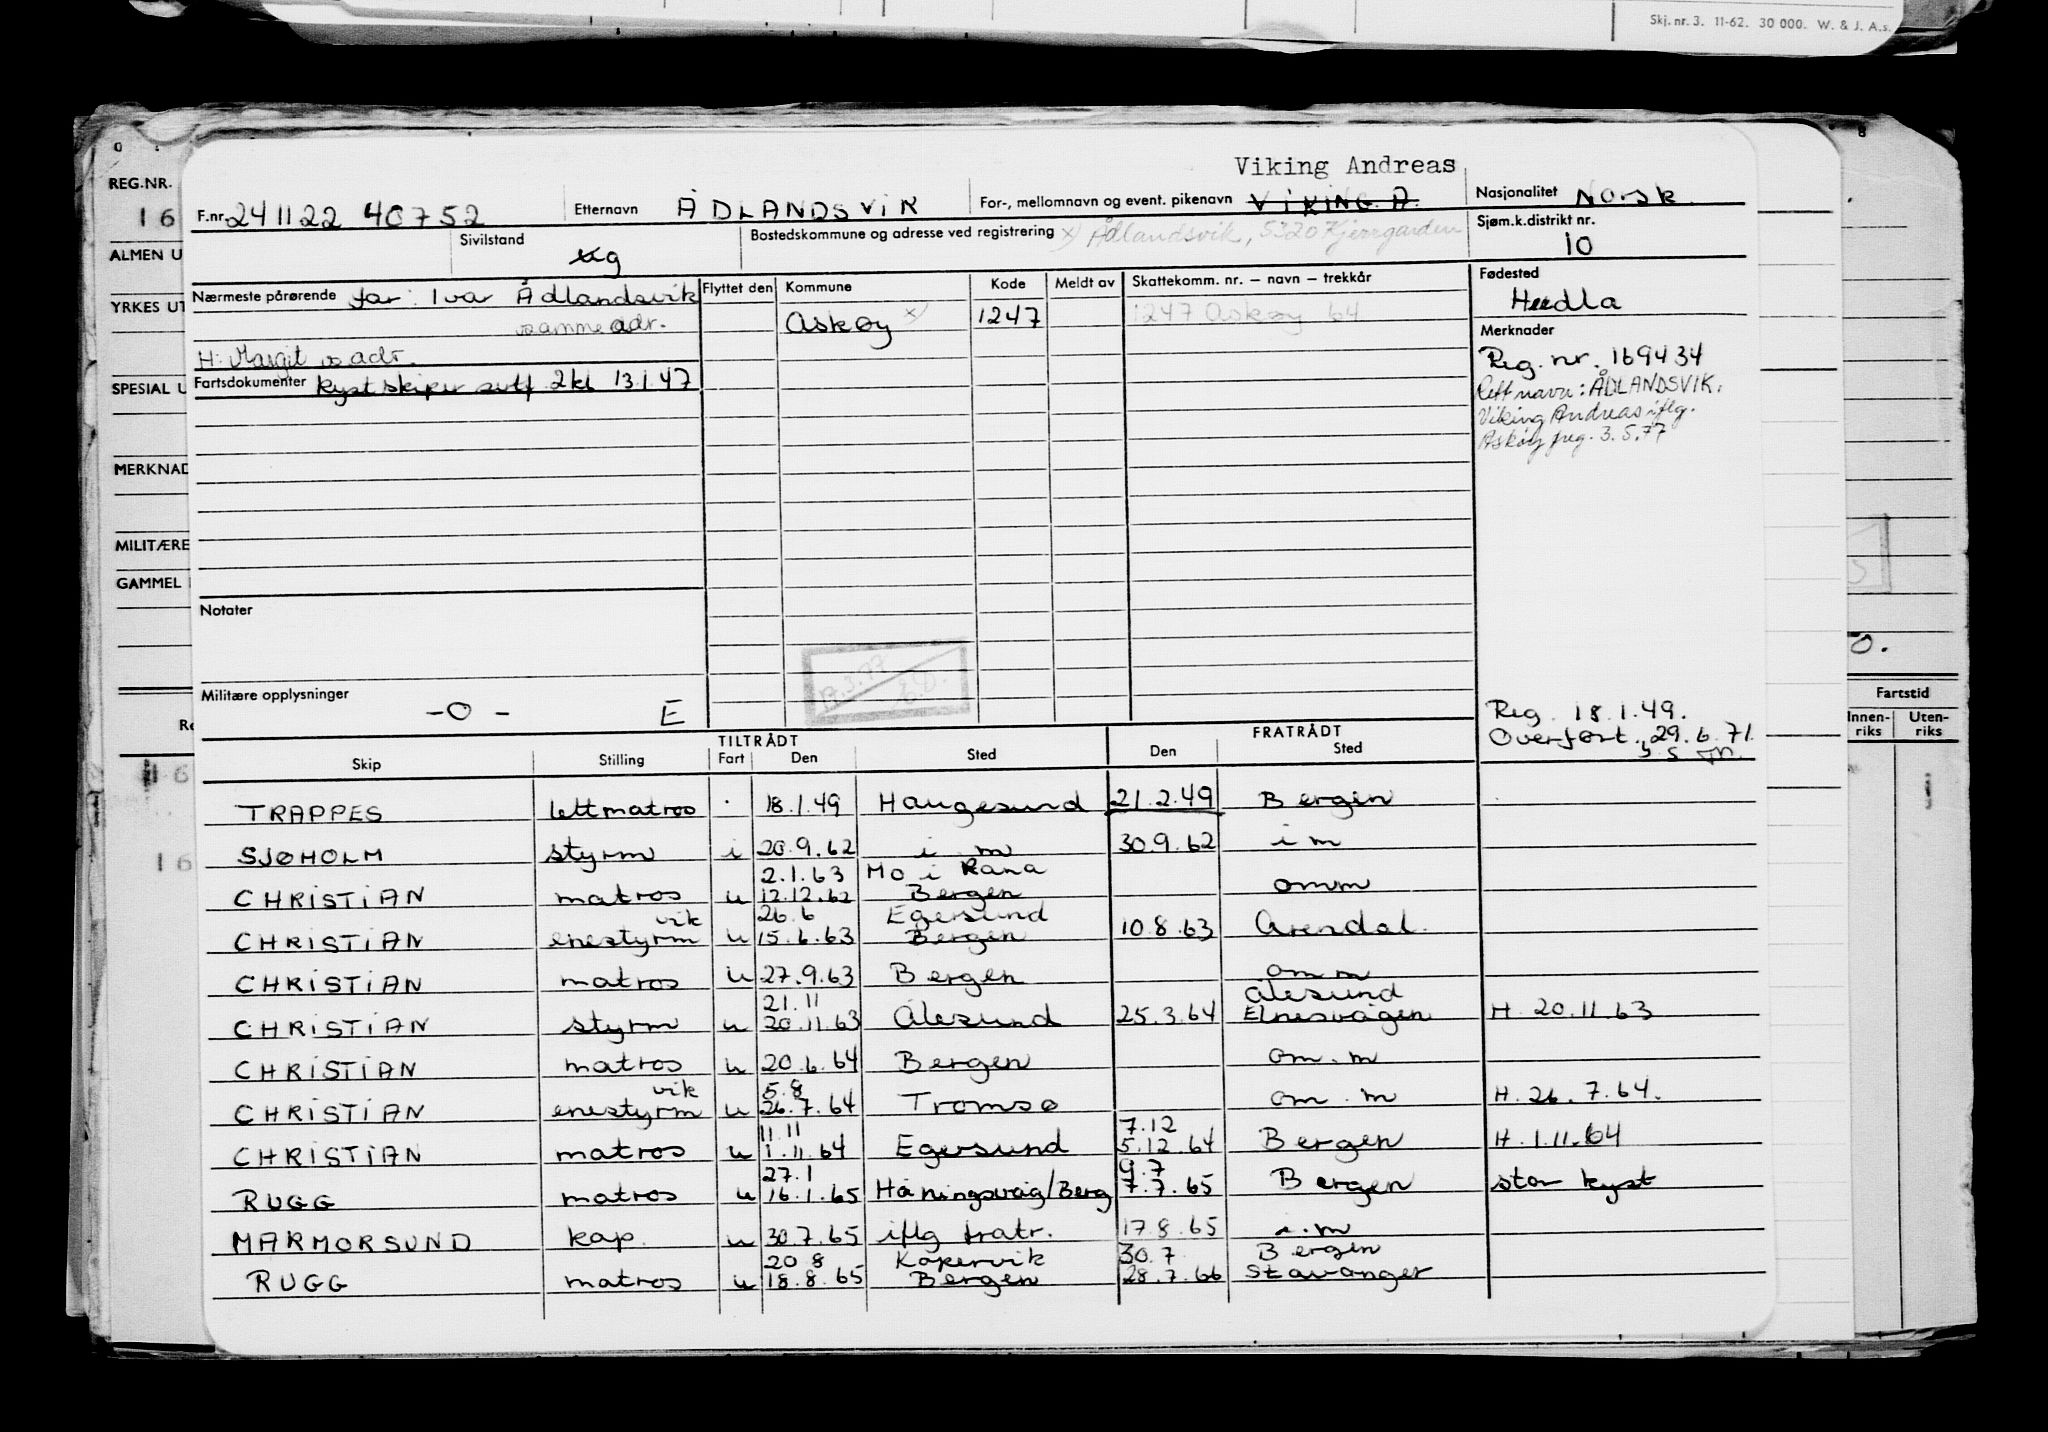 Skj. nr. 3. 11-62. 30 000. W. & J. A.s.
REG.NR.
16
ALMEN U
YRKES UT
SPESIAL U
MERKNAD
MILITÆRE
GAMMEL
Viking Andreas
F.nr. 241122 40752 Etternavn ÅDLANDSVIK For-, mellomnavn og event. pikenavn VIKING A. Nasjonalitet Norsk
Sivilstand g Bostedskommune og adresse ved registrering x) Ådlandsvik, 5320 Kjerrgarden Sjøm.k.distrikt nr. 10
Nærmeste pårørende far: Ivar Ådlandsvik Flyttet den Kommune Kode Meldt av Skattekomm. nr. — navn — trekkår Fødested
samme adr. Askøy x) 1247 1247 Askøy 64 Herdla
H: Margit s adr. Merknader
Fartsdokumenter kystskiper sertf 2 kl 13.1.47 Reg. nr. 169434
Rett navn: ÅDLANDSVIK,
Viking Andreas iflg.
Askøy freg. 3.5.77
Notater
17.3.77
Militære opplysninger -0- E
Reg. 18.1.49.
Overført. 29.6.71.
TILTRÅDT FRATRÅDT
Skip Stilling Fart Den Sted Den Sted
TRAPPES lettmatros 18.1.49 Haugesund 21.2.49 Bergen
SJØHOLM styrm i 20.9.62 i m 30.9.62 i m
2.1.63 Mo i Rana
CHRISTIAN matros u 12.12.62 Bergen omm
vik 26.6 Egersund
CHRISTIAN enestyrm u 15.6.63 Bergen 10.8.63 Arendal.
CHRISTIAN matros u 27.9.63 Bergen omm
21.11 Ålesund
CHRISTIAN styrm u 20.11.63 Ålesund 25.3.64 Elnesvågen H. 20.11.63
CHRISTIAN matros u 20.6.64 Bergen om.m
vik 5.8
CHRISTIAN enestyrm u 26.7.64 Tromsø om.m H. 26.7.64.
11.11 7.12
CHRISTIAN matros u 1.11.64 Egersund 5.12.64 Bergen H. 1.11.64
27.1 9.7
RUGG matros u 16.1.65 Honningsvåg/Berg 7.7.65 Bergen stor kyst
MARMORSUND kap. u 30.7.65 iflg fratr. 17.8.65 i.m
20 8 Kopervik 30.7 Bergen
RUGG matros u 18.8.65 Bergen 28.7.66 Stavanger
Fartstid
Innen-
riks
Uten-
riks